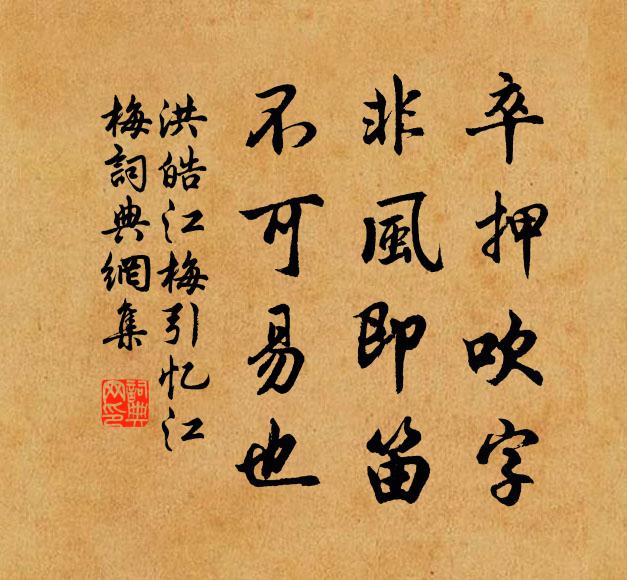 卒押吹字
非風即笛
不可易也
洪皓江梅引忆江
梅詞典網集
詞典
网印